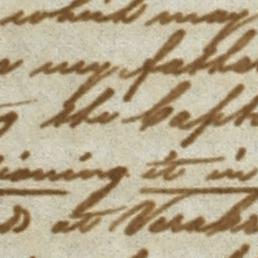 which may
my father
the Capt
ioning it in
at Verakr